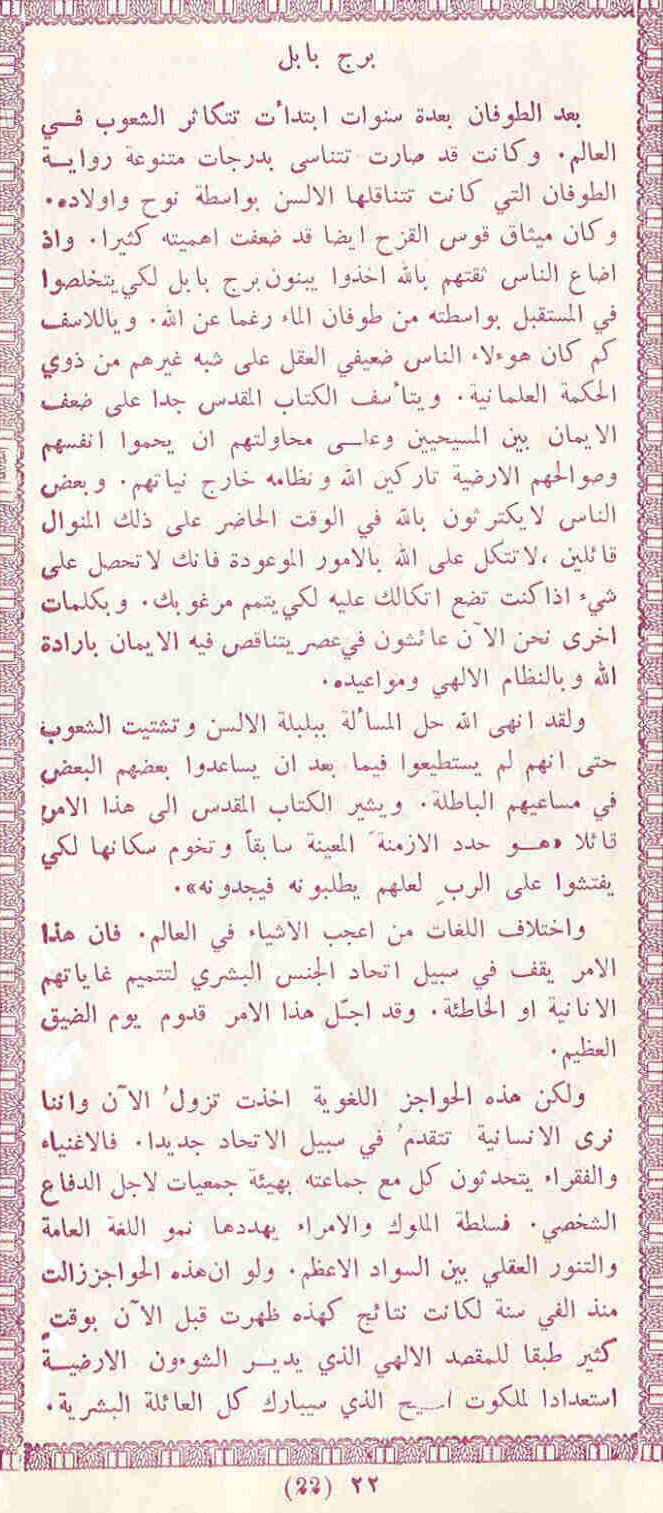 برج بابل
بعد الطوفان بعدة سنوات ابتدأت تتكاثر الشعوب فـي
العالم. وكانت قد صارت تتناسى بدرجات متنوعة روايـة
الطوفان التي كانت تتناقلها الالسن بواسطة نوح واولاده.
وكان ميثاق قوس القزح ايضا قد ضعفت اهميته كثيرا. واذ
اضاع الناس ثقتهم بالله اخذوا يبنون برج بابل لكي يتخلصوا
في المستقبل بواسطته من طوفان الماء رغما عن الله. وياللاسف
كم كان هوءلاء الناس ضعيفي العقل على شبه غيرهم من ذوي
الحكمة العلمانية. ويتأسف الكتاب المقدس جدا على ضعف
الايمان بين المسيحيين وعلـى محاولتهم ان يحموا انفسهم
وصوالحهم الارضية تاركين الله ونظامه خارج نياتهم. وبعض
الناس لايكترثون بالله في الوقت الحاضر على ذلك المنوال
قائلين ،لاتتكل على الله بالامور الموعودة فانك لاتحصل على
شيء اذاكنت تضع اتكالك عليه لكي يتمم مرغوبك. وبكلمات
اخرى نحن الآن عائشون في عصر يتناقص فيه الايمان بارادة
الله وبالنظام الالهي ومواعيده.
ولقد انهى الله حل المسألة ببلبلة الالسن وتشتيت الشعوب
حتى انهم لم يستطيعوا فيما بعد ان يساعدوا بعضهم البعض
في مساعيهم الباطلة. ويشير الكتاب المقدس الى هذا الامر
قائلا «هـو حدد الازمنةَ المعينة سابقاً وتخوم سكانها لكي
يفتشوا على الربِ لعلهم يطلبونه فيجدونه».
واختلاف اللغات من اعجب الاشياء في العالم. فان هذا
الامر يقف في سبيل اتحاد الجنس البشري لتتميم غاياتهم
الانانية او الخاطئة. وقد اجّل هذا الامر قدوم يوم الضيق
العظيم.
ولكن هذه الحواجز اللغوية اخذت تزولُ الآن واننا
نرى الانسانية تتقدمُ في سبيل الاتحاد جديدا. فالاغنياء
والفقراء يتحدثون كل مع جماعته بهيئة جمعيات لاجل الدفاع
الشخصي. فسلطة الملوك والامراء يهددها نمو اللغة العامة
والتنور العقلي بين السواد الاعظم. ولو ان هذه الحواجز زالت
منذ الفي سنة لكانت نتائج كهذه ظهرت قبل الآن بوقتٍ
كثير طبقا للمقصد الالهي الذي يديـر الشوءون الارضيـة
استعدادا لملكوت المسيح الذي سيبارك كل العائلة البشرية.
٢٢ (22)